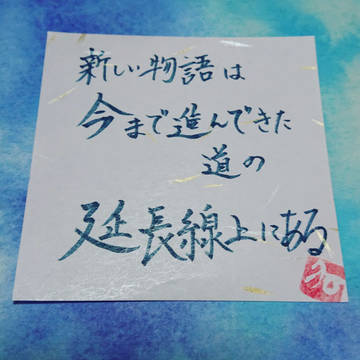 新しい物語は
今まで進んできた
道の
延長線上にある